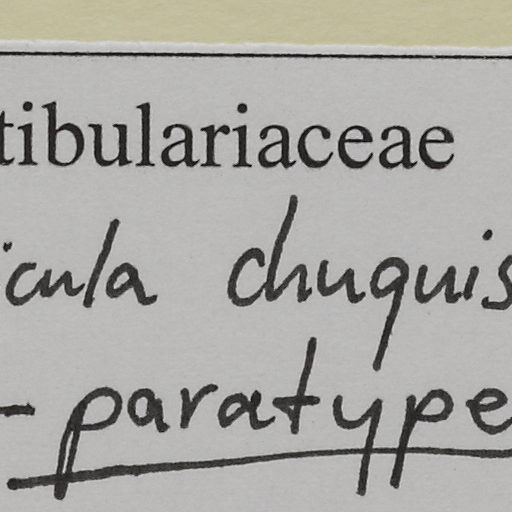 tibulariaceae
icula chuquis
- paratype